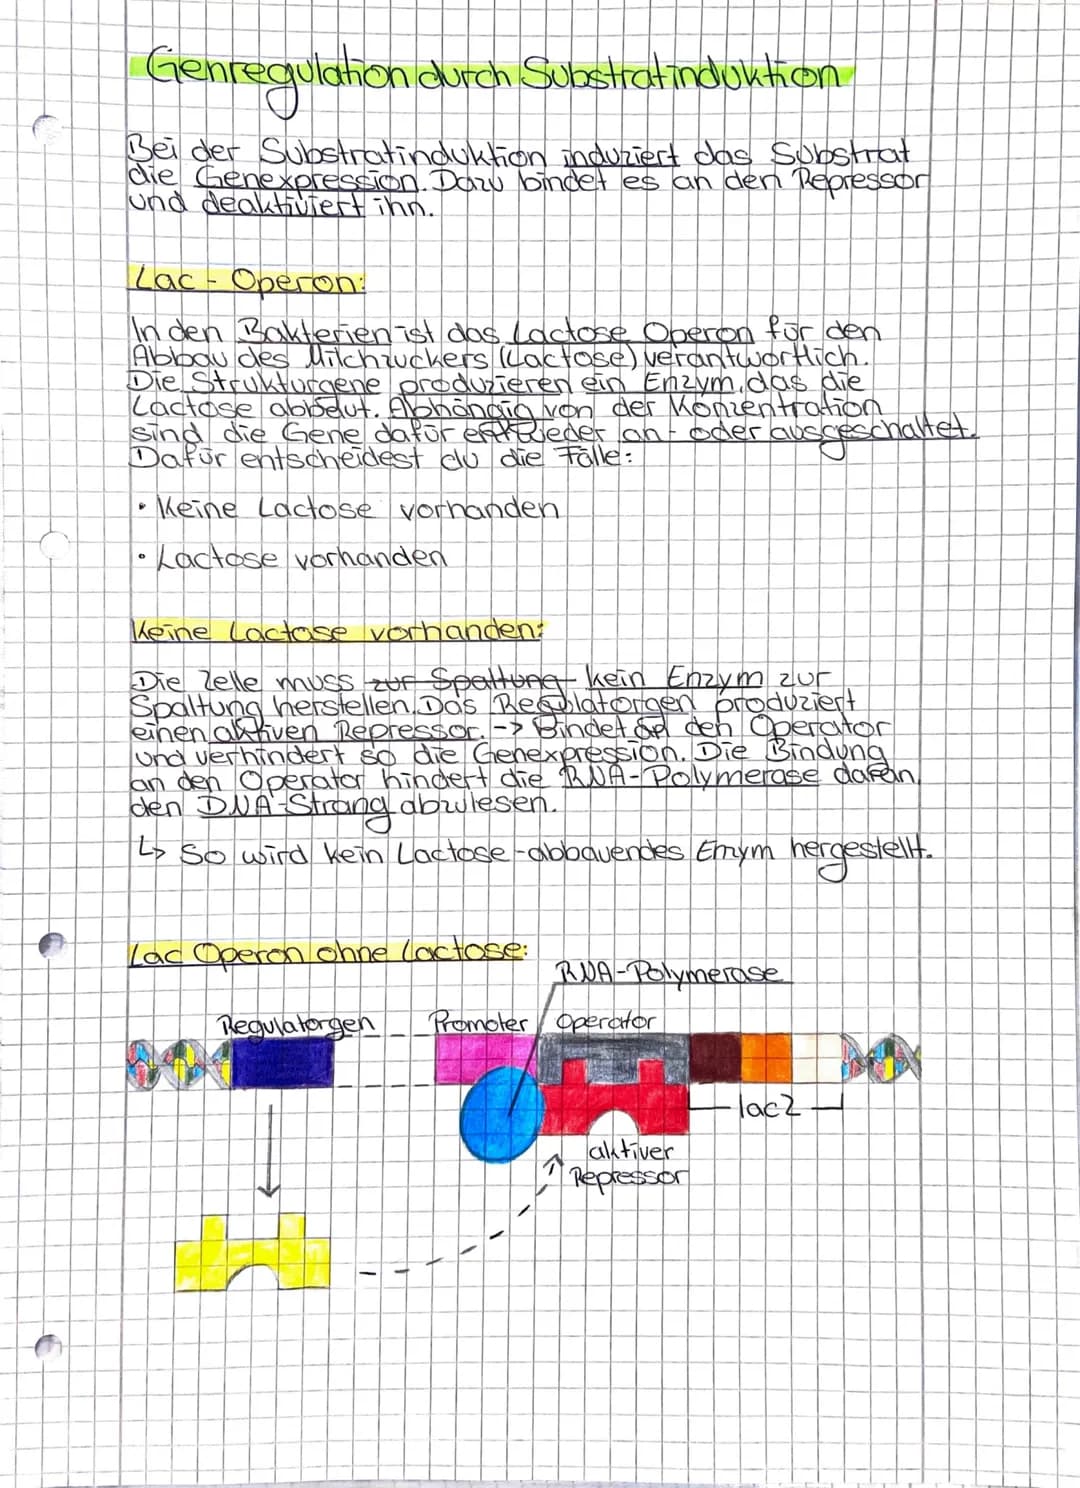 Genregulation durch Substratinduktion
Bei der Substratinduktion induziert das Substrat
die Genexpression. Dazu bindet es an den Repressor
und deaktiviert ihn.
Lac - Operon:
In den Bakterien ist das Lactose Operon für den
Abbau des Milchzuckers (Lactose) verantwortlich.
Die Strukturgene produzieren ein Enzym, das die
Lactose abbaut. Abhängig von der Konzentration
sind die Gene dafür entweder an- oder ausgeschaltet.
Dafür entscheidest du die Fälle:
• Keine Lactose vorhanden
• Lactose vorhanden
Keine Lactose vorhanden:
Die Zelle muss zur Spaltung kein Enzym zur
Spaltung herstellen. Das Regulatorgen produziert
einen aktiven Repressor. -> Bindet den Operator
und verhindert so die Genexpression. Die Bindung
an den Operator hindert die RNA-Polymerase daran,
den DNA-Strang abzulesen.
↳ So wird kein Lactose-abbauendes Enzym hergestellt.
Lac Operon ohne Lactose:
RNA-Polymerase
Regulatorgen Promoter Operator
lacZ
aktiver
Repressor